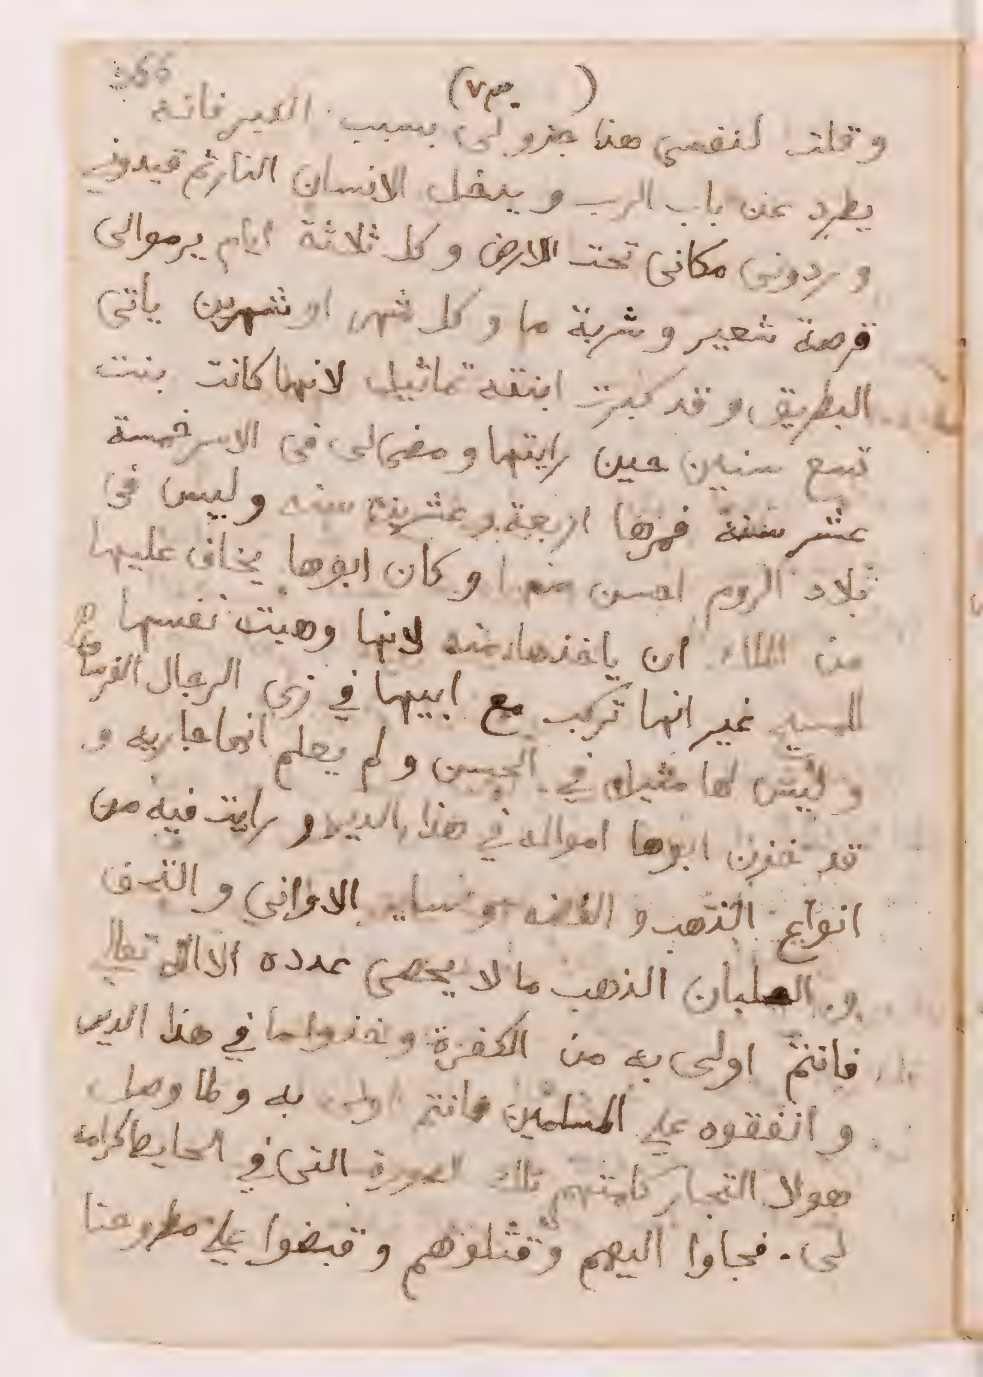 366
( ص ٧ )
وقلت لنفسي هذا جزو لى بسبب الكبر فانه
يطرد عن باب الرب و يدخل الانسان النار ثم قيدونى
و ردونى مكانى تحت الارض و كل ثلاثة ايام يرموا لى
قرصة شعير و شربة ما و كل شهر او شهرين ياتى
البطريق و قد كبرت ابنته تماثيل لانها كانت بنت
تسع سنين حين رايتها و مضى لى فى الاسر خمسة
عشر سنة فعمرها اربعة و عشرين سنه و ليس فى
بلاد الروم احسن منها و كان ابوها يخاف عليها
من الملك ان ياخذها منه لانها وهبت نفسها
للمسيح غير انها تركب مع ابيها في زى الرجال الفرسان
و ليس لها مثيل في الحسن و لم يعلم انها جاريه و
قد خزن ابوها امواله في هذا الدير و رايت فيه من
انواع الذهب و الفضه و ساير الاوانى و التحف
و الصلبان الذهب ما لا يحصى عدده الا الله تعالى
فانتم اولى به من الكفرة و خذوا ما في هذا الدير
و انفقوه على المسلمين فانتم اولى به و لما وصل
هولا التجار كلمتهم تلك الصورة التى في الحايط اكرامه
لى . فجاوا اليهم و قتلوهم و قبضوا على مطروحنا